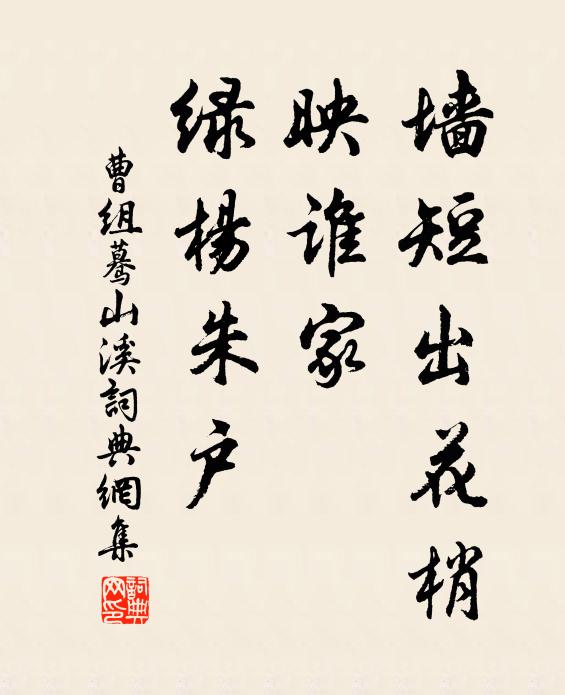 墙短出花梢
映谁家
绿杨朱户
曹组蓦山溪詞典網集
詞典網印